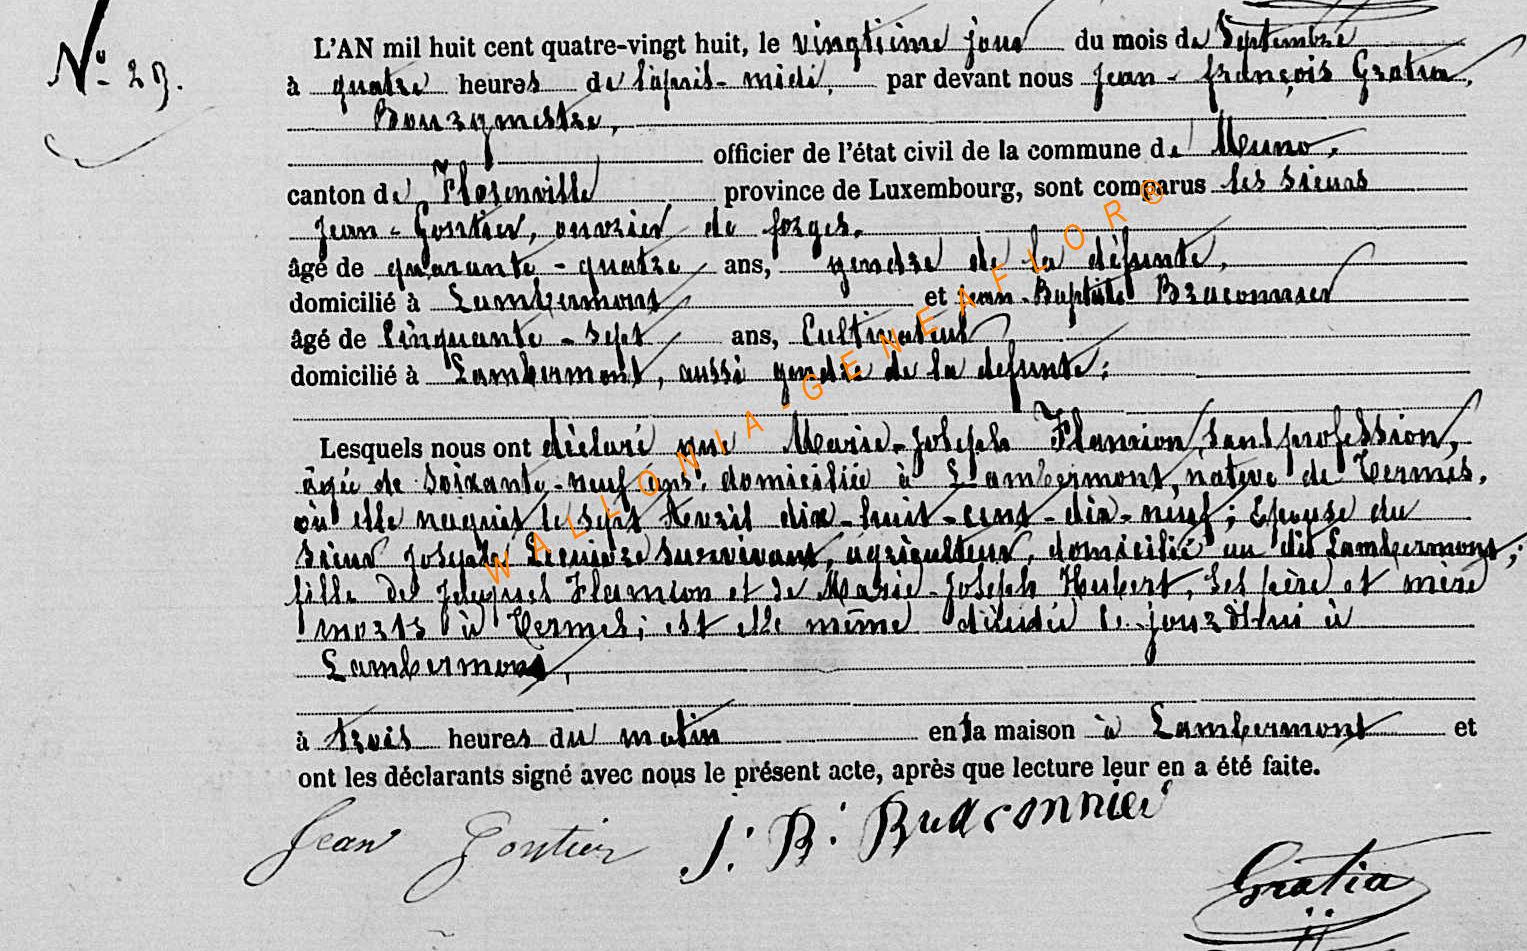 N° 29.
L'AN mil huit cent quatre-vingt huit, le vingtième jour du mois de Septembre
à quatre heures de l'après-midi, par devant nous Jean-François Gratia,
Bourgmestre,
officier de l'état civil de la commune de Muno,
canton de Florenville province de Luxembourg, sont comparus les sieurs
Jean-Gontier, ouvrier de forges,
âgé de quarante-quatre ans, gendre de la défunte,
domicilié à Lambermont et Jean-Baptiste Braconnier
âgé de Cinquante-sept ans, Cultivateur
domicilié à Lambermont, aussi gendre de la défunte;
Lesquels nous ont déclaré que Marie-Joseph Flamion, sans profession,
âgée de soixante-neuf ans, domiciliée à Lambermont, native de Termes,
où elle naquit le sept Avril dix-huit-cent-dix-neuf; Epouse du
sieur Joseph survivant, agriculteur, domicilié au dit Lambermont;
fille de Jacques Flamion et de Marie-Joseph Hubert, ses père et mère
morts à Termes; est elle même décédée le jourd'hui à
Lambermont,
à trois heures du matin en la maison à Lambermont et
ont les déclarants signé avec nous le présent acte, après que lecture leur en a été faite.
Jean Gontier J. B. Braconnier
Gratia
WALLONIA-GENEAFLOR®